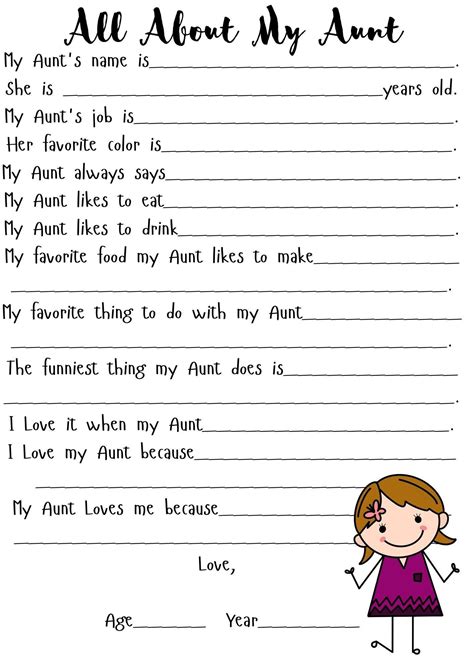 All About My Aunt
My Aunt's name is____________________.
She is ____________________years old.
My Aunt's job is____________________.
Her favorite color is____________________.
My Aunt always says____________________.
My Aunt likes to eat____________________.
My Aunt likes to drink____________________.
My favorite food my Aunt likes to make____________________
____________________.
My favorite thing to do with my Aunt____________________
____________________.
The funniest thing my Aunt does is____________________
____________________.
I Love it when my Aunt____________________.
I Love my Aunt because____________________
____________________.
My Aunt Loves me because____________________
____________________
Love,
Age________ Year________